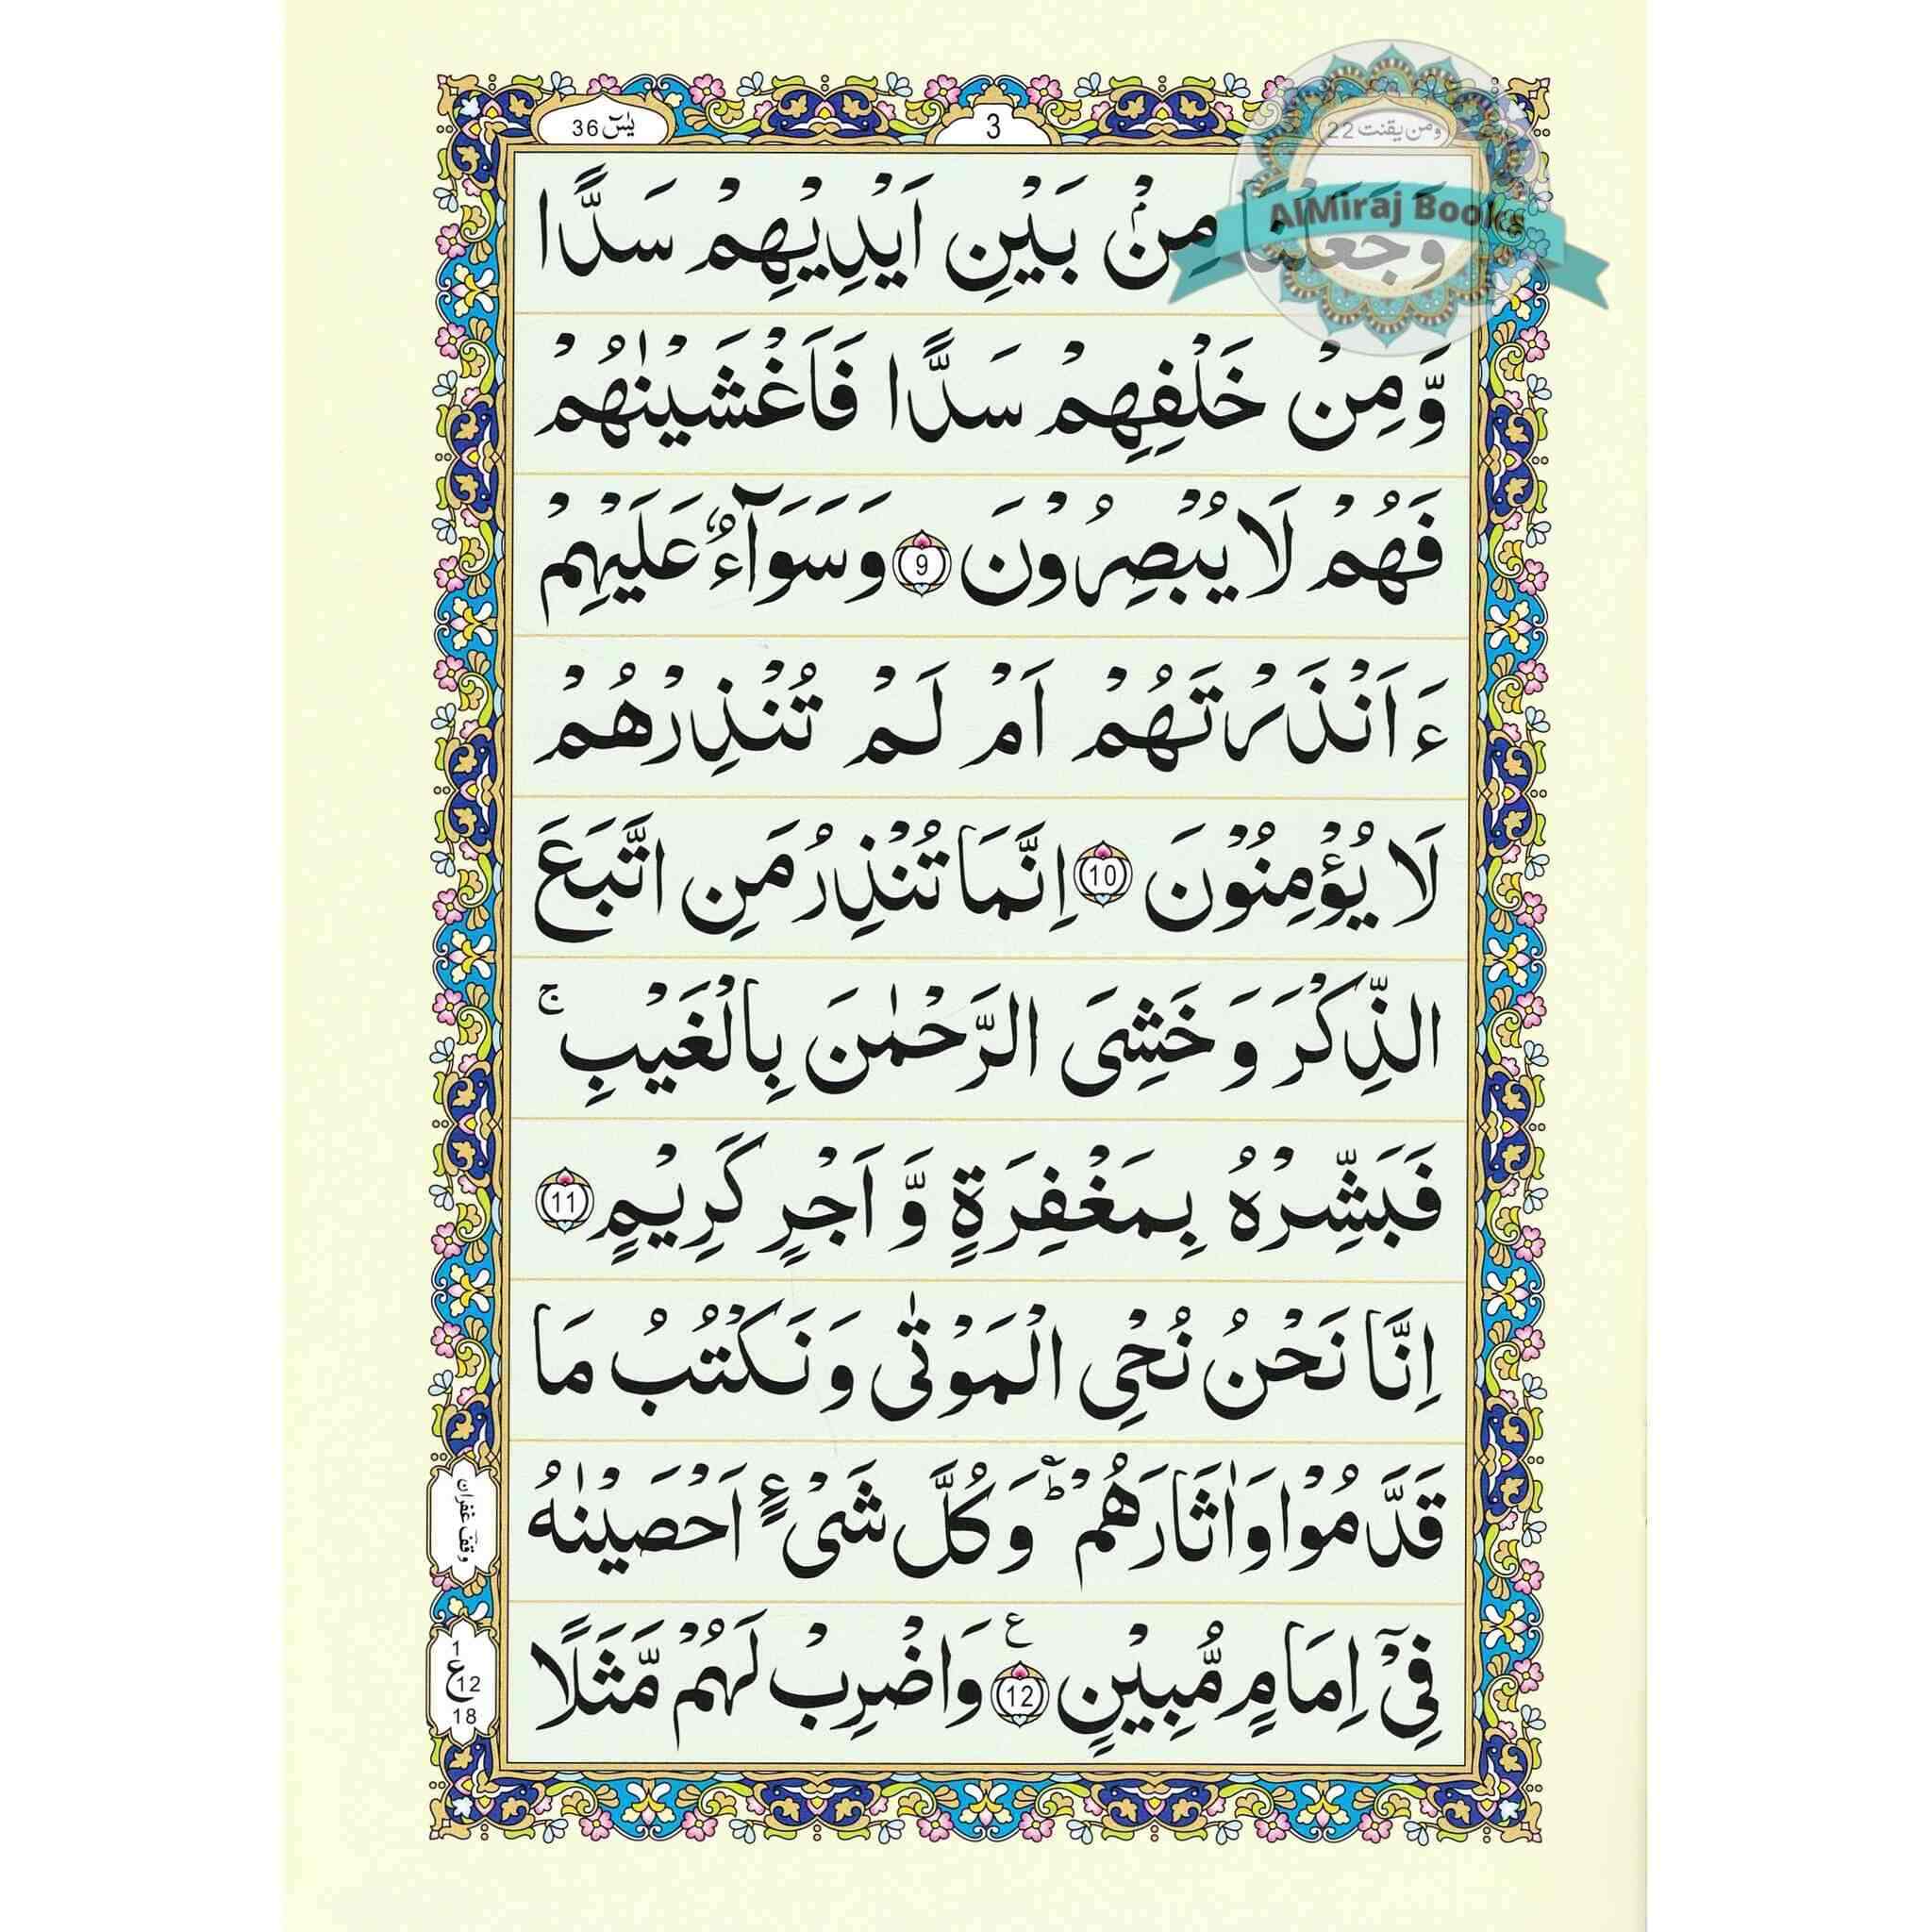 یٰسٓ 36
3
ومن یقنت 22
AlMiraj Books
وَجَعَلْنَا مِنْۢ بَیْنِ اَیْدِیْهِمْ سَدًّا
وَّمِنْ خَلْفِهِمْ سَدًّا فَاَغْشَیْنٰهُمْ
فَهُمْ لَا یُبْصِرُوْنَ 9 وَسَوَآءٌ عَلَیْهِمْ
ءَاَنْذَرْتَهُمْ اَمْ لَمْ تُنْذِرْهُمْ
لَا یُؤْمِنُوْنَ 10 اِنَّمَا تُنْذِرُ مَنِ اتَّبَعَ
الذِّكْرَ وَ خَشِیَ الرَّحْمٰنَ بِالْغَیْبِ ۚ
فَبَشِّرْهُ بِمَغْفِرَةٍ وَّ اَجْرٍ كَرِیْمٍ 11
اِنَّا نَحْنُ نُحْیِ الْمَوْتٰی وَ نَكْتُبُ مَا
قَدَّمُوْا وَاٰثَارَهُمْ ؕ وَ كُلَّ شَیْءٍ اَحْصَیْنٰهُ
وقف غفران
فِیْۤ اِمَامٍ مُّبِیْنٍ 12 ع وَاضْرِبْ لَهُمْ مَّثَلًا
1
ع 12
18